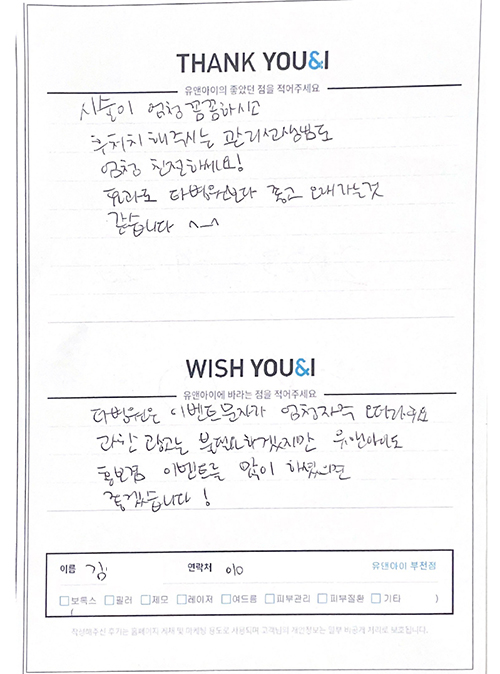 THANK YOU&I
유앤아이의 좋았던 점을 적어주세요
시술이 엄청 꼼꼼하시고
후처치 해주시는 관리선생님도
엄청 친절하세요!
효과도 타병원보다 좋고 오래가는것
같습니다 ^_^
WISH YOU&I
유앤아이에 바라는 점을 적어주세요
타병원은 이벤트문자가 엄청자주 오더라구요
과한 광고는 불필요하겠지만 유앤아이도
홍보겸 이벤트를 많이 하셨으면
좋겠습니다!
이름 김 연락처 010 유앤아이 부천점
보톡스 필러 제모 레이저 여드름 피부관리 피부질환 기타
( )
작성해주신 후기는 홈페이지 게재 및 마케팅 용도로 사용되며 고객님의 개인정보는 일부 비공개 처리로 보호됩니다.